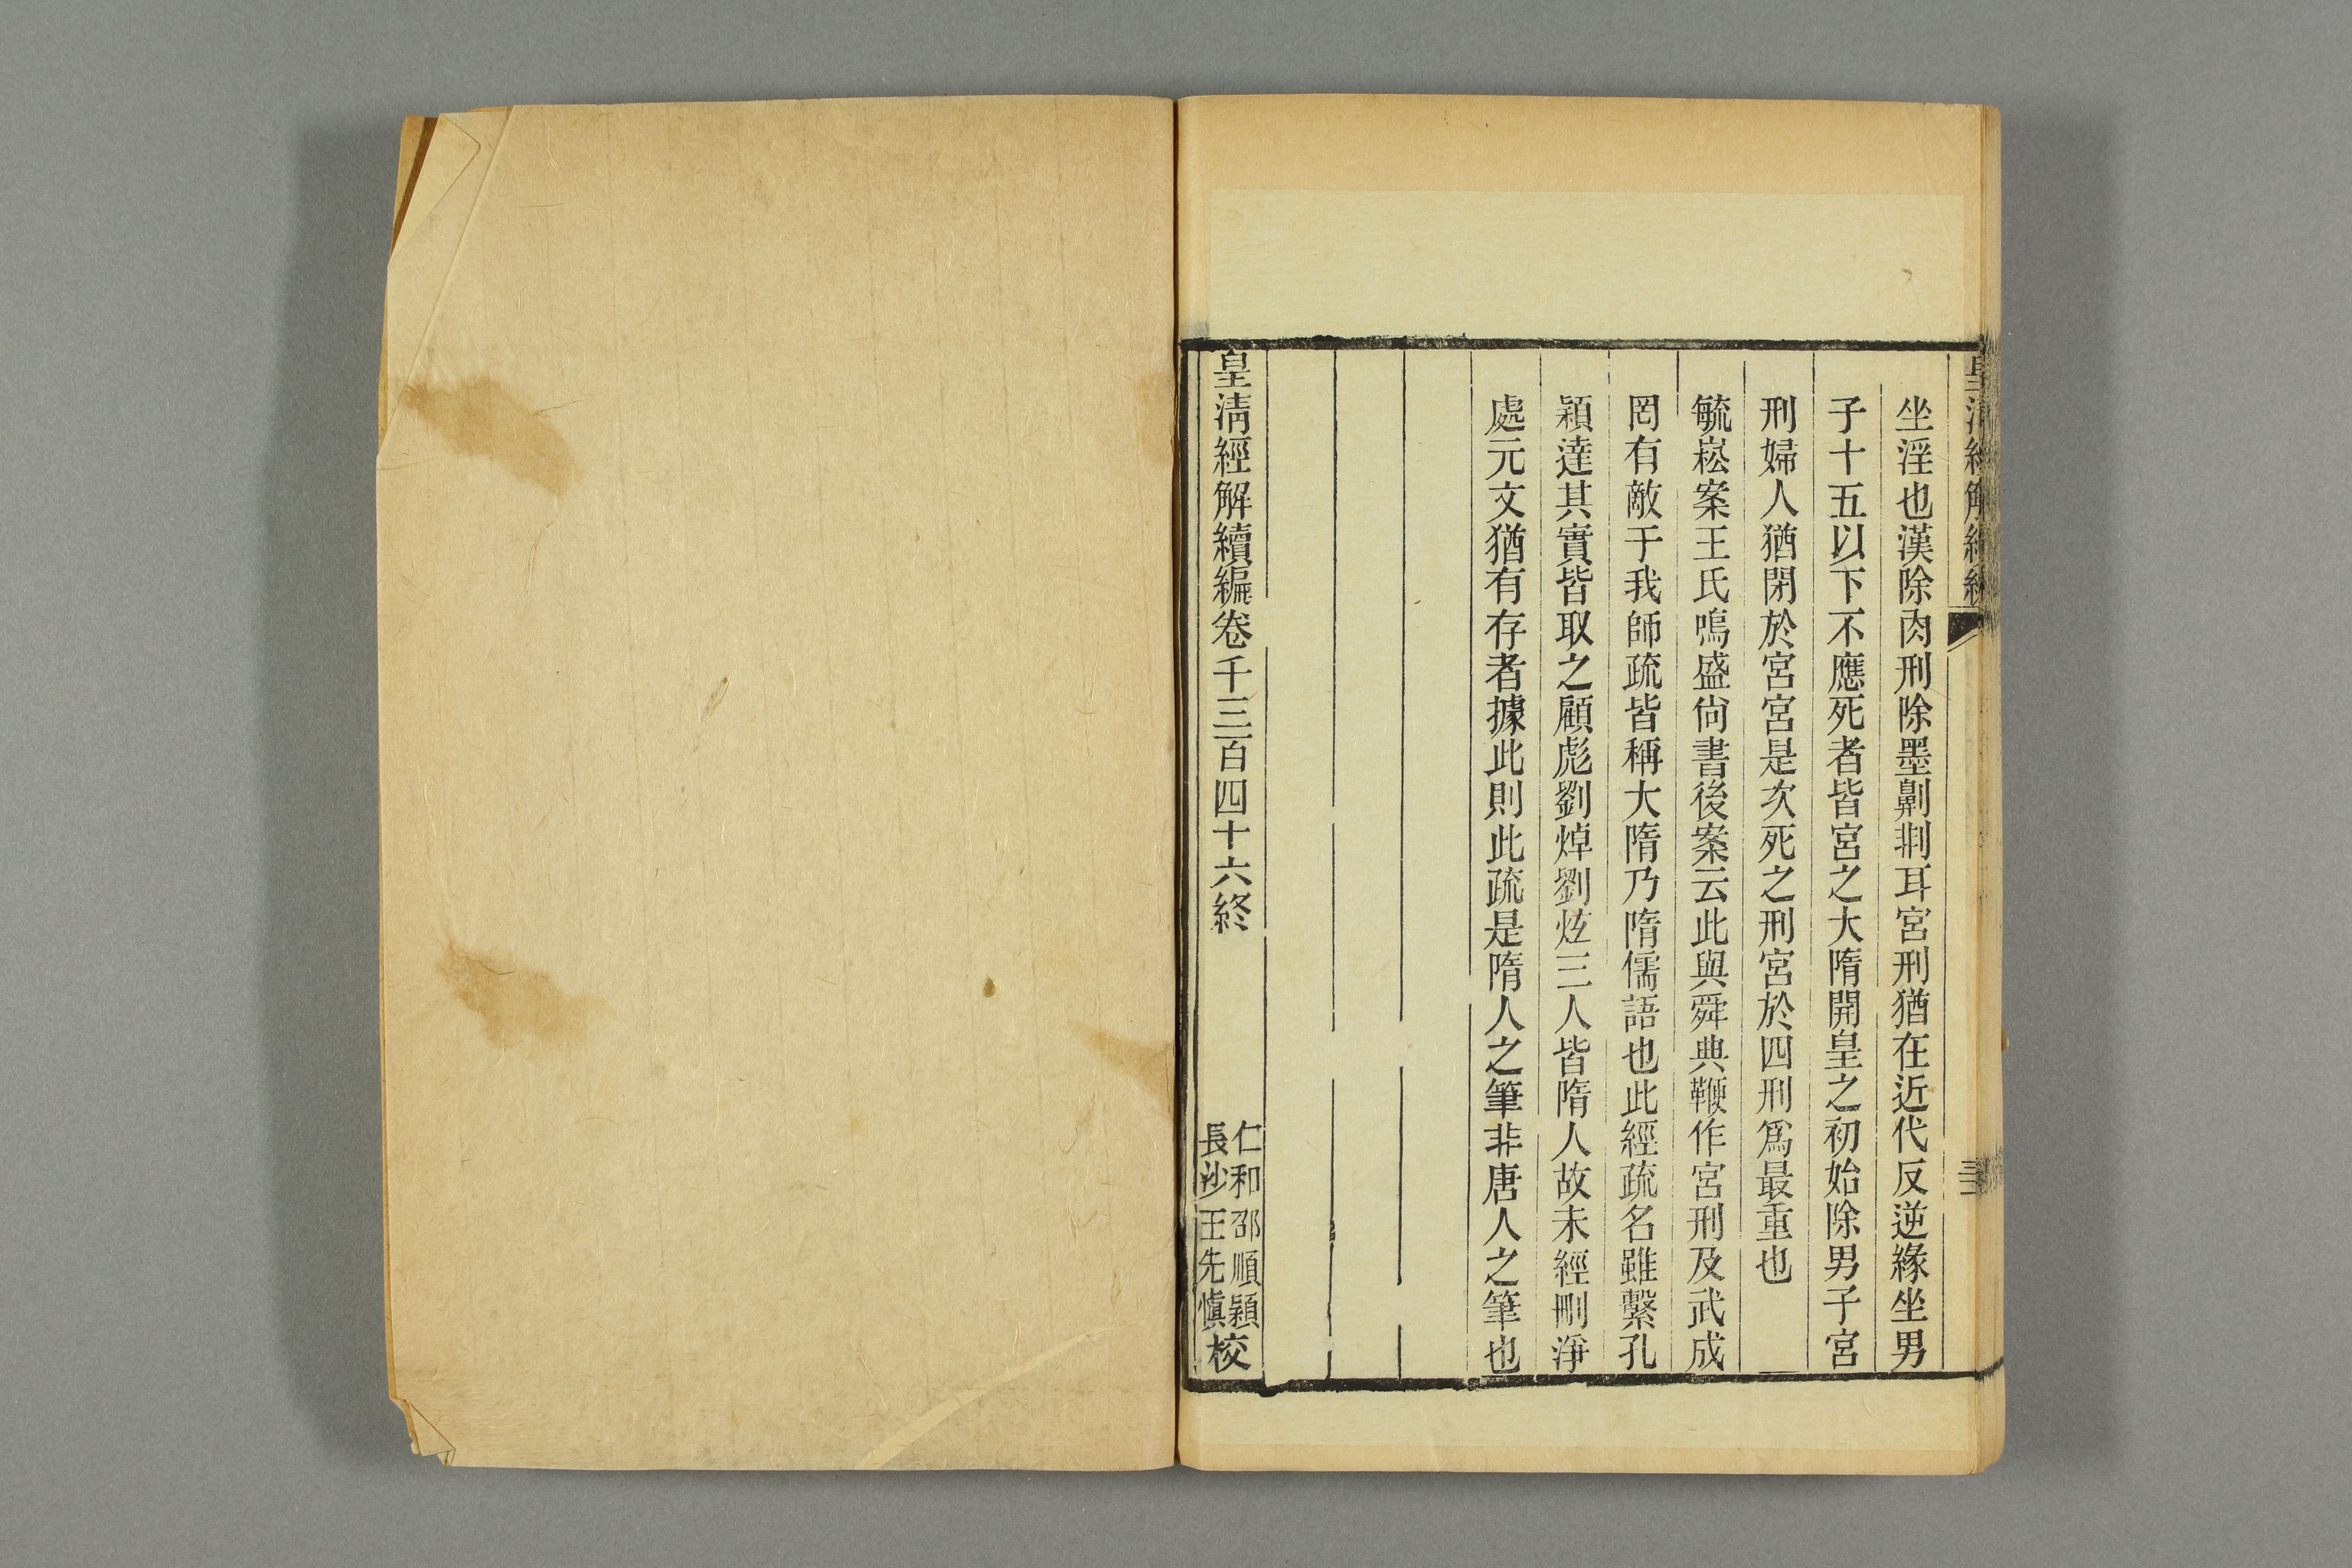 坐淫也漢除肉刑除墨劓剕耳宮刑猶在近代反逆緣坐男
子十五以下不應死者皆宮之大隋開皇之初始除男子宮
刑婦人猶閉於宮宮是次死之刑宮於四刑爲最重也
毓崧案王氏鳴盛尙書後案云此與舜典鞭作宮刑及武成
罔有敵于我師疏皆稱大隋乃隋儒語也此經疏名雖繫孔
穎達其實皆取之顧彪劉焯劉炫三人皆隋人故未經刪淨
處元文猶有存者據此則此疏是隋人之筆非唐人之筆也
皇淸經解續編卷千三百四十六終
仁和邵順穎
長沙王先愼
校